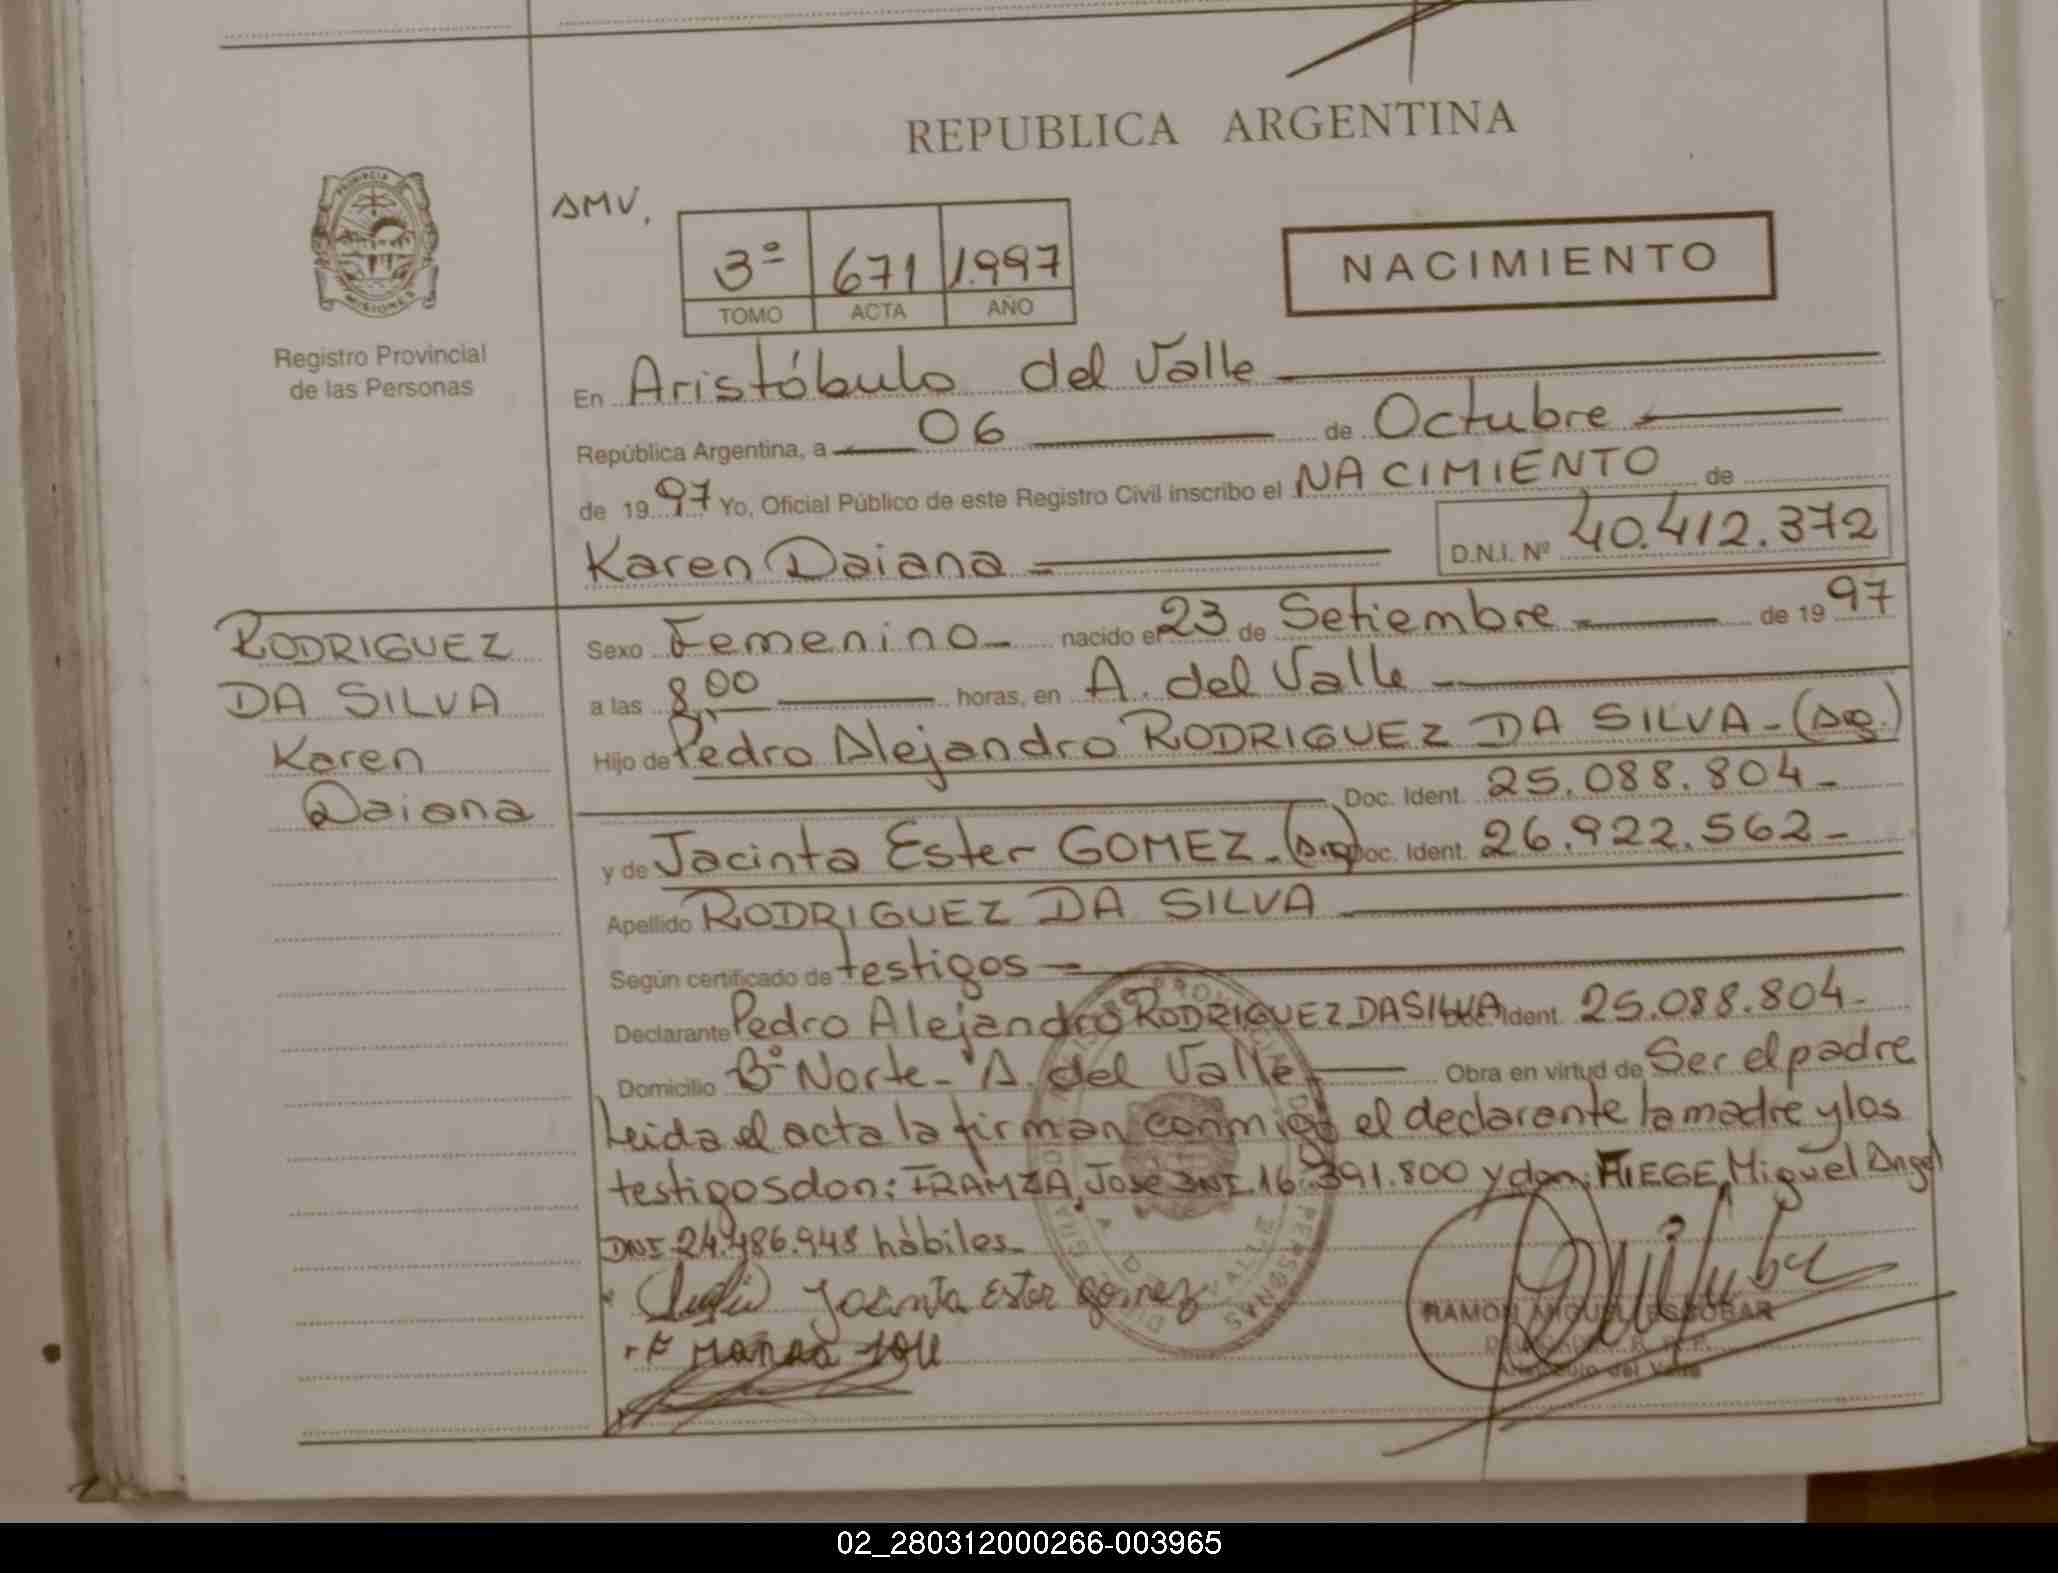 REPUBLICA ARGENTINA
PROVINCIA
MISIONES
Registro Provincial
de las Personas
AMV.
3º 671 1.997
TOMO ACTA AÑO
NACIMIENTO
En Aristóbulo del Valle
República Argentina, a 06 de Octubre
de 1997 Yo, Oficial Público de este Registro Civil inscribo el NACIMIENTO de
Karen Daiana D.N.I. Nº 40.412.372
RODRIGUEZ
DA SILVA
Karen
Daiana
Sexo Femenino nacido el 23 de Setiembre de 1997
a las 8,00 horas, en A. del Valle
Hijo de Pedro Alejandro RODRIGUEZ DA SILVA - (Arg.)
Doc. Ident. 25.088.804-
y de Jacinta Ester GOMEZ - (Arg) Doc. Ident. 26.922.562-
Apellido RODRIGUEZ DA SILVA
Según certificado de testigos
Declarante Pedro Alejandro RODRIGUEZ DA SILVA Doc. Ident. 25.088.804-
Domicilio Bº Norte - A. del Valle Obra en virtud de Ser el padre
Leida el acta la firman conmigo el declarante la madre y los
testigos don: FRAMZA, José DNI. 16.391.800 y don: FIEGE, Miguel Angel
DNI 24.486.948 hábiles-
Jacinta Ester gomez
RAMON MIGUEL ESCOBAR
Aristóbulo del Valle
02_280312000266-003965